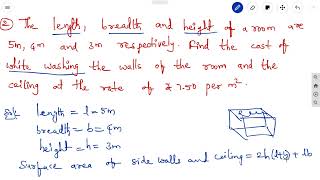 ② The length, breadth and height of a room are
5m, 4m and 3m respectively. Find the cost of
white washing the walls of the room and the
ceiling at the rate of ₹ 7.50 per m².
Sol: length = l = 5m
breadth = b = 4m
height = h = 3m
Surface area of side walls and ceiling = 2h(l+b) + lb